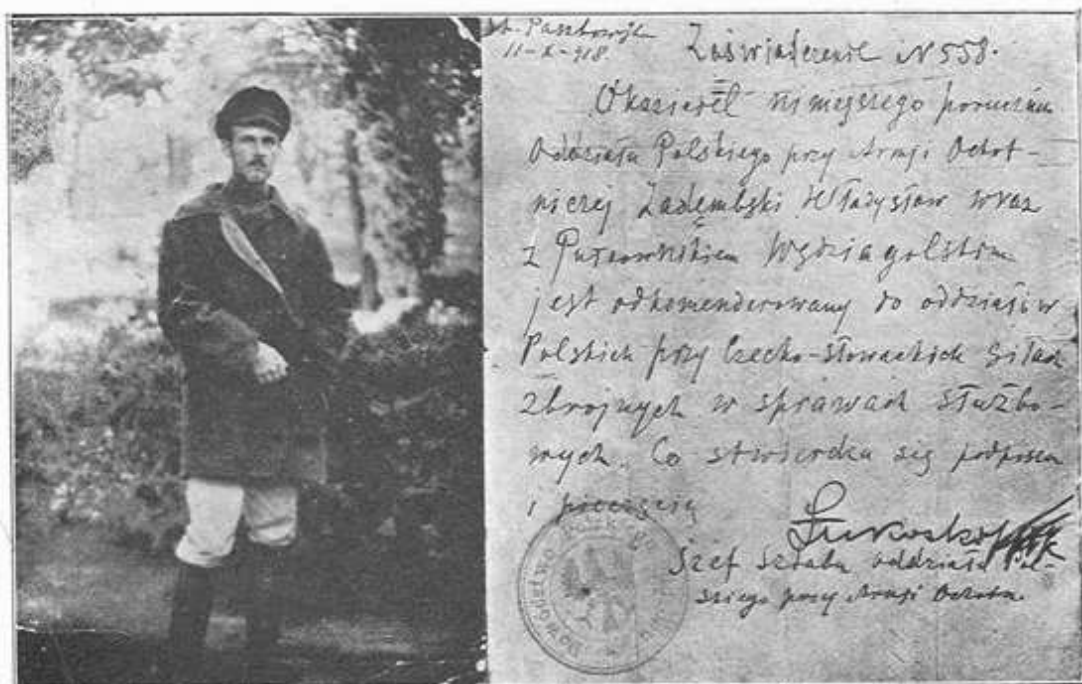 St. Paszkowska
11-X-918.
Zaświadczenie N 558.
Okaziciel niniejszego porucznik
Oddziału Polskiego przy Armji Ochot-
niczej Zadembski Władysław wraz
z Pułkownikiem Wędziagolskim
jest odkomenderowany do oddziałów
Polskich przy Czecho-słowackich siłach
zbrojnych w sprawach służbo-
wych. Co stwierdza się podpisem
i pieczęcią
Szef sztabu oddziału Pol-
skiego przy Armji Ochotn.
Dowództwo